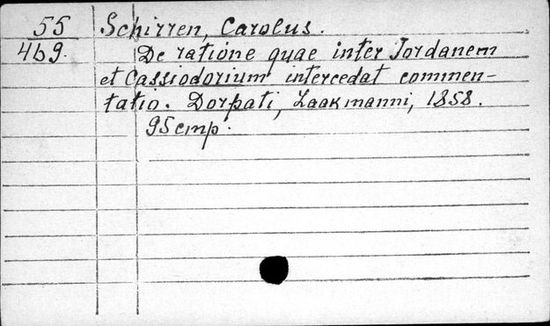 55 Schirren, Carolus.
469. De ratione quae inter Jordanem
et Cassiodorium intercedat commen-
tatio. Dorpati, Laakmanni, 1858.
95 стр.